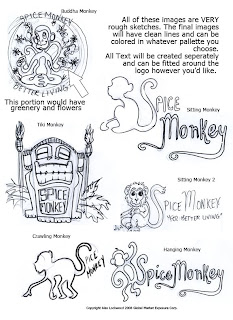 Buddha Monkey
SPICE MONKEY
BETTER LIVING
This portion would have
greenery and flowers
All of these images are VERY
rough sketches. The final images
will have clean lines and can be
colored in whatever pallette you
choose.
All Text will be created seperately
and can be fitted around the
logo however you'd like.
SPICE
Monkey
Sitting Monkey
Tiki Monkey
SPICE
MONKEY
Sitting Monkey 2
SPICE
MONKEY
"FOR BETTER LIVING"
Crawling Monkey
SPICE
MONKEY
Hanging Monkey
Spice Monkey